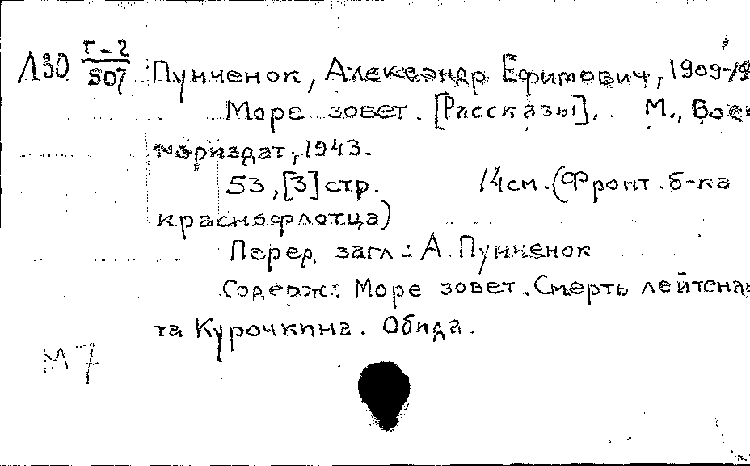 Л30 Г-2/307 Пунченок, Александр Ефимович, 1909-19
Море зовет. [Рассказы]. М., Воен
мориздат, 1943.
53, [3] стр. 14см. (Фронт. б-ка
краснофлотца)
Перед загл: А. Пунченок
Содерж: Море зовет. Смерть лейтена
та Курочкина. Обида.
М7